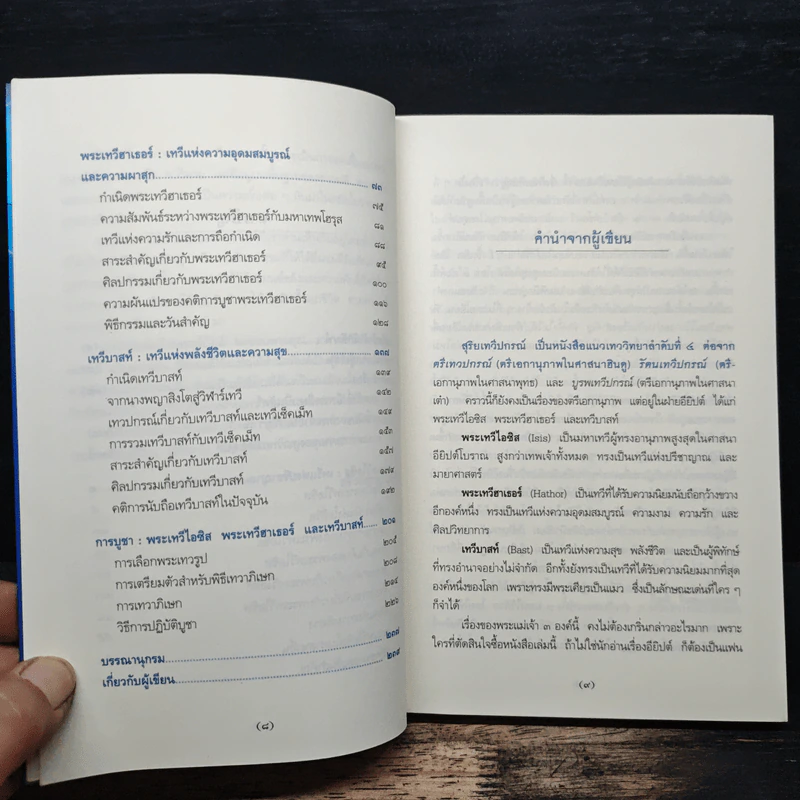 พระเทวีฮาเธอร์ : เทวีแห่งความอุดมสมบูรณ์
และความผาสุก ๗๓
กำเนิดพระเทวีฮาเธอร์ ๗๕
ความสัมพันธ์ระหว่างพระเทวีฮาเธอร์กับมหาเทพโฮรุส ๘๑
เทวีแห่งความรักและการถือกำเนิด ๘๘
สาระสำคัญเกี่ยวกับพระเทวีฮาเธอร์ ๙๕
ศิลปกรรมเกี่ยวกับพระเทวีฮาเธอร์ ๑๐๐
ความผันแปรของคติการบูชาพระเทวีฮาเธอร์ ๑๑๖
พิธีกรรมและวันสำคัญ ๑๒๘
เทวีบาสท์ : เทวีแห่งพลังชีวิตและความสุข ๑๓๗
กำเนิดเทวีบาสท์ ๑๓๙
จากนางพญาสิงโตสู่วิฬาร์เทวี ๑๔๒
เทวปกรณ์เกี่ยวกับเทวีบาสท์และเทวีเซ็คเม็ท ๑๔๙
การรวมเทวีบาสท์กับเทวีเซ็คเม็ท ๑๕๓
สาระสำคัญเกี่ยวกับเทวีบาสท์ ๑๕๗
ศิลปกรรมเกี่ยวกับเทวีบาสท์ ๑๗๙
คติการนับถือเทวีบาสท์ในปัจจุบัน ๑๙๒
การบูชา : พระเทวีไอซิส พระเทวีฮาเธอร์ และเทวีบาสท์ ๒๐๑
การเลือกพระเทวรูป ๒๐๕
การเตรียมตัวสำหรับพิธีเทวาภิเษก ๒๐๘
การเทวาภิเษก ๒๑๔
วิธีการปฏิบัติบูชา ๒๒๖
บรรณานุกรม ๒๓๗
เกี่ยวกับผู้เขียน ๒๓๙
(๘)
คำนำจากผู้เขียน
สุริยเทวีปกรณ์ เป็นหนังสือแนวเทววิทยาลำดับที่ ๔ ต่อจาก
ตรีเทวปกรณ์ (ตรีเอกานุภาพในศาสนาฮินดู) รัตนเทวีปกรณ์ (ตรี-
เอกานุภาพในศาสนาพุทธ) และ บูรพเทวีปกรณ์ (ตรีเอกานุภาพในศาสนา
เต๋า) คราวนี้ก็ยังคงเป็นเรื่องของตรีเอกานุภาพ แต่อยู่ในฝ่ายอียิปต์ ได้แก่
พระเทวีไอซิส พระเทวีฮาเธอร์ และเทวีบาสท์
พระเทวีไอซิส (Isis) เป็นมหาเทวีผู้ทรงอานุภาพสูงสุดในศาสนา
อียิปต์โบราณ สูงกว่าเทพเจ้าทั้งหมด ทรงเป็นเทวีแห่งปรีชาญาณ และ
มายาศาสตร์
พระเทวีฮาเธอร์ (Hathor) เป็นเทวีที่ได้รับความนิยมนับถือกว้างขวาง
อีกองค์หนึ่ง ทรงเป็นเทวีแห่งความอุดมสมบูรณ์ ความงาม ความรัก และ
ศิลปวิทยาการ
เทวีบาสท์ (Bast) เป็นเทวีแห่งความสุข พลังชีวิต และเป็นผู้พิทักษ์
ที่ทรงอำนาจอย่างไม่จำกัด อีกทั้งยังทรงเป็นเทวีที่ได้รับความนิยมมากที่สุด
องค์หนึ่งของโลก เพราะทรงมีพระเศียรเป็นแมว ซึ่งเป็นลักษณะเด่นที่ใคร ๆ
ก็จำได้
เรื่องของพระแม่เจ้า ๓ องค์นี้ คงไม่ต้องเกริ่นกล่าวอะไรมาก เพราะ
ใครที่ตัดสินใจซื้อหนังสือเล่มนี้ ถ้าไม่ใช่นักอ่านเรื่องอียิปต์ ก็ต้องเป็นแฟน
(๙)